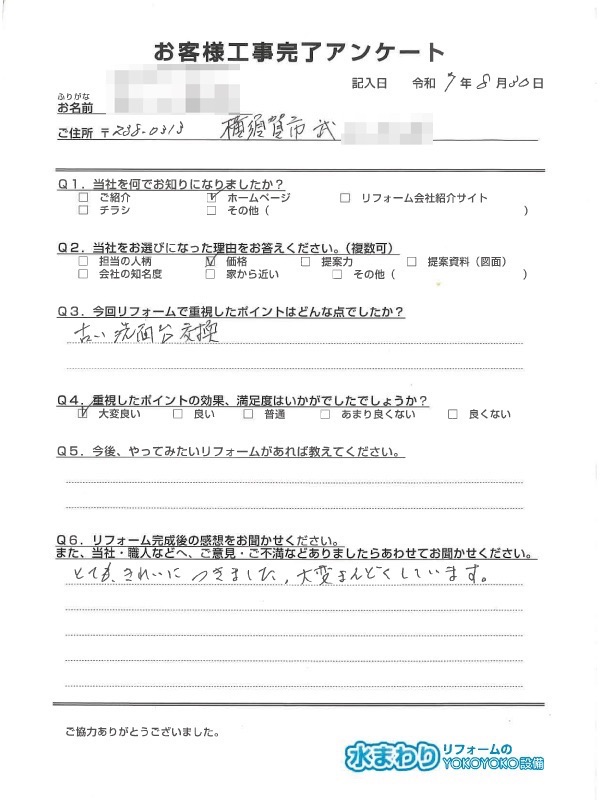 お客様工事完了アンケート
記入日 令和 7 年 8 月 30 日
ふりがな
お名前
ご住所 〒238-0313 横須賀市 武
Q1. 当社を何でお知りになりましたか?
□ ご紹介 ☑ ホームページ □ リフォーム会社紹介サイト
□ チラシ □ その他 ( )
Q2. 当社をお選びになった理由をお答えください。(複数可)
□ 担当の人柄 ☑ 価格 □ 提案力 □ 提案資料 (図面)
□ 会社の知名度 □ 家から近い □ その他 ( )
Q3. 今回リフォームで重視したポイントはどんな点でしたか?
古い洗面台交換
Q4. 重視したポイントの効果、満足度はいかがでしたでしょうか?
☑ 大変良い □ 良い □ 普通 □ あまり良くない □ 良くない
Q5. 今後、やってみたいリフォームがあれば教えてください。
Q6. リフォーム完成後の感想をお聞かせください。
また、当社・職人などへ、ご意見・ご不満などありましたらあわせてお聞かせください。
とても、きれいに つきました、大変まんぞくしています。
ご協力ありがとうございました。
水まわり リフォームの
YOKOYOKO設備